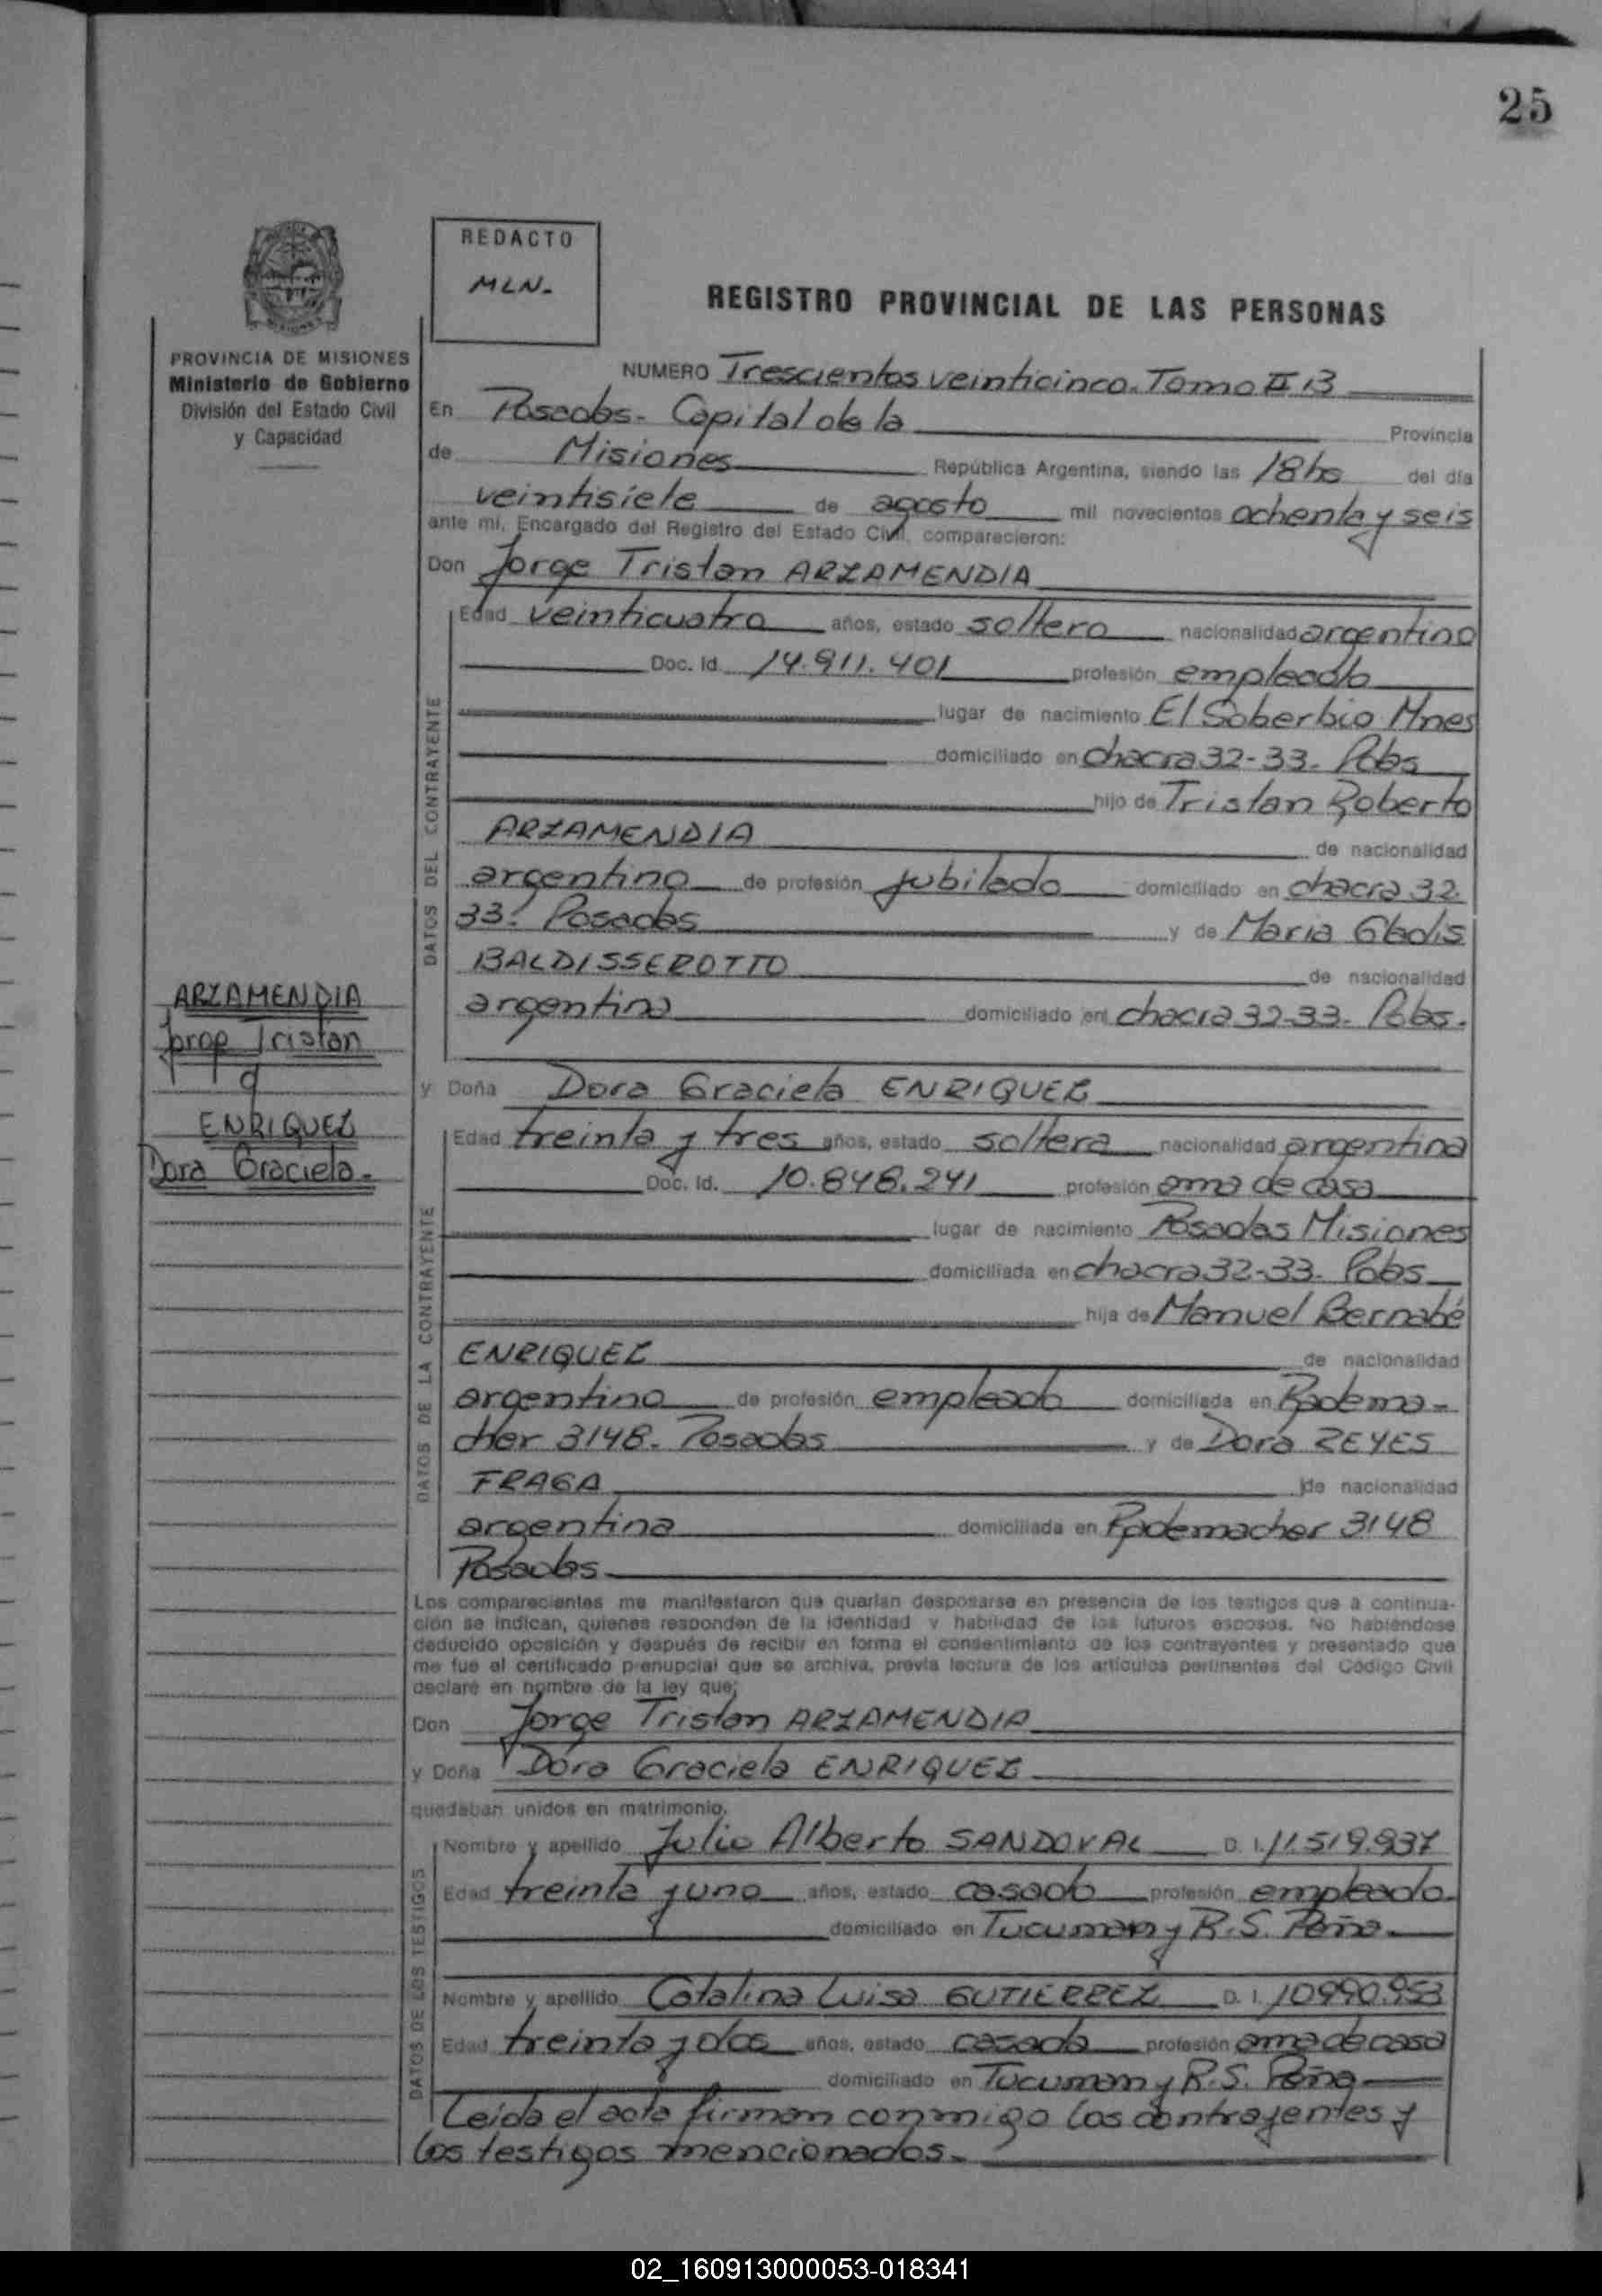 25
REDACTO
MLN.-
REGISTRO PROVINCIAL DE LAS PERSONAS
PROVINCIA DE MISIONES
Ministerio de Gobierno
División del Estado Civil
y Capacidad
NUMERO Trescientos veinticinco. Tomo II B
En Posadas- Capital de la Provincia
de Misiones República Argentina, siendo las 18 hs del día
veintisiete de agosto mil novecientos ochenta y seis
ante mí, Encargado del Registro del Estado Civil, comparecieron:
Don Jorge Tristan ARZAMENDIA
DATOS DEL CONTRAYENTE
Edad veinticuatro años, estado soltero nacionalidad argentino
Doc. Id. 14.911.401 profesión empleado
lugar de nacimiento El Soberbio Mnes
domiciliado en chacra 32-33- Pdas
hijo de Tristan Roberto
ARZAMENDIA de nacionalidad
argentino de profesión jubilado domiciliado en chacra 32.
33. Posadas y de Maria Gladis
BALDISSEROTTO de nacionalidad
argentina domiciliado en chacra 32-33- Pdas.
ARZAMENDIA
Jorge Tristan
y
ENRIQUEZ
Dora Graciela-
y Doña Dora Graciela ENRIQUEZ
DATOS DE LA CONTRAYENTE
Edad treinta y tres años, estado soltera nacionalidad argentina
Doc. Id. 10.848.241 profesión ama de casa
lugar de nacimiento Posadas Misiones
domiciliada en chacra 32-33- Pdas
hija de Manuel Bernabé
ENRIQUEZ de nacionalidad
argentino de profesión empleado domiciliada en Radema-
cher 3148- Posadas y de Dora REYES
FRAGA de nacionalidad
argentina domiciliada en Rademacher 3148
Posadas
Los comparecientes me manifestaron que querían desposarse en presencia de los testigos que a continua-
ción se indican, quienes responden de la identidad y habilidad de los futuros esposos. No habiéndose
deducido oposición y después de recibir en forma el consentimiento de los contrayentes y presentado que
me fue el certificado prenupcial que se archiva, previa lectura de los artículos pertinentes del Código Civil
declaré en nombre de la ley que;
Don Jorge Tristan ARZAMENDIA
y Doña Dora Graciela ENRIQUEZ
quedaban unidos en matrimonio.
DATOS DE LOS TESTIGOS
Nombre y apellido Julio Alberto SANDOVAL D. I. 11.519.937
Edad treinta y uno años, estado casado profesión empleado-
domiciliado en Tucuman y R.S. Peña-
Nombre y apellido Catalina Luisa GUTIERREZ D. I. 10990.953
Edad treinta y dos años, estado casada profesión ama de casa
domiciliado en Tucuman y R.S. Peña
Leida el acta firman conmigo los contrayentes y
los testigos mencionados.-
02_160913000053-018341